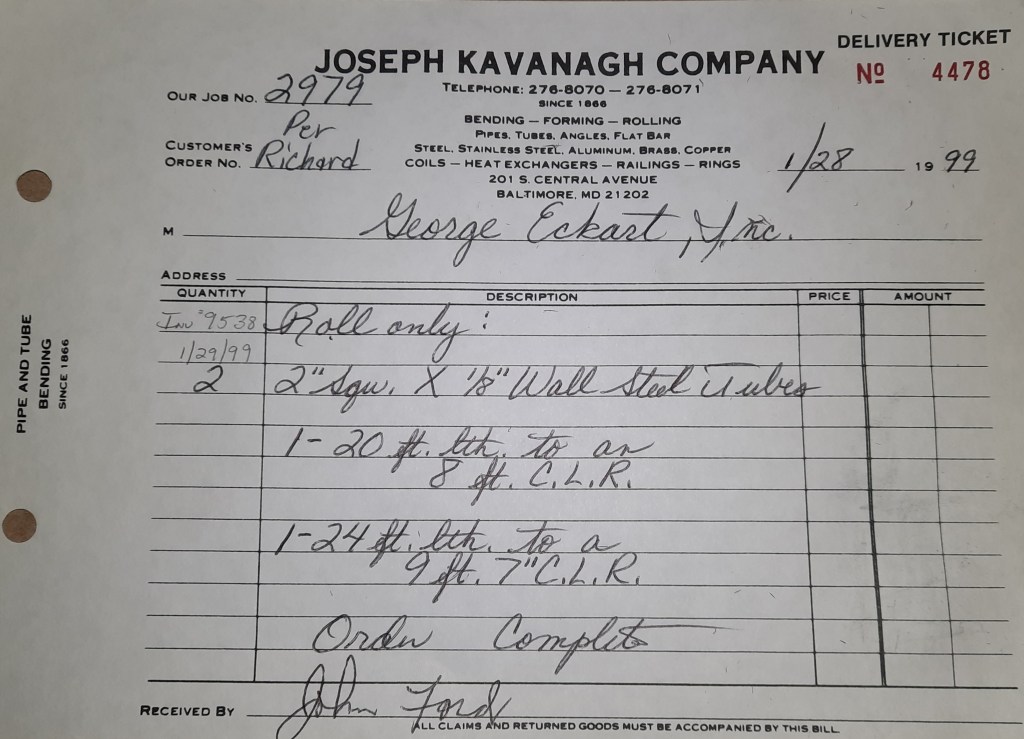 DELIVERY TICKET
JOSEPH KAVANAGH COMPANY
No 4478
TELEPHONE: 276-8070 — 276-8071
SINCE 1866
OUR JOB NO. 2979
BENDING — FORMING — ROLLING
PIPES, TUBES, ANGLES, FLAT BAR
STEEL, STAINLESS STEEL, ALUMINUM, BRASS, COPPER
COILS — HEAT EXCHANGERS — RAILINGS — RINGS
201 S. CENTRAL AVENUE
BALTIMORE, MD 21202
Per
CUSTOMER'S
ORDER NO. Richard
1/28 1999
M George Eckart, Inc.
ADDRESS
QUANTITY DESCRIPTION PRICE AMOUNT
Inv #9538 Roll only:
1/29/99
2 2" Squ. X 1/8" Wall Steel Tubes
1-20 ft. lth. to an
8 ft. C.L.R.
1-24 ft. lth. to a
9 ft. 7" C.L.R.
Order Complete
RECEIVED BY John Ford
ALL CLAIMS AND RETURNED GOODS MUST BE ACCOMPANIED BY THIS BILL
PIPE AND TUBE
BENDING
SINCE 1866